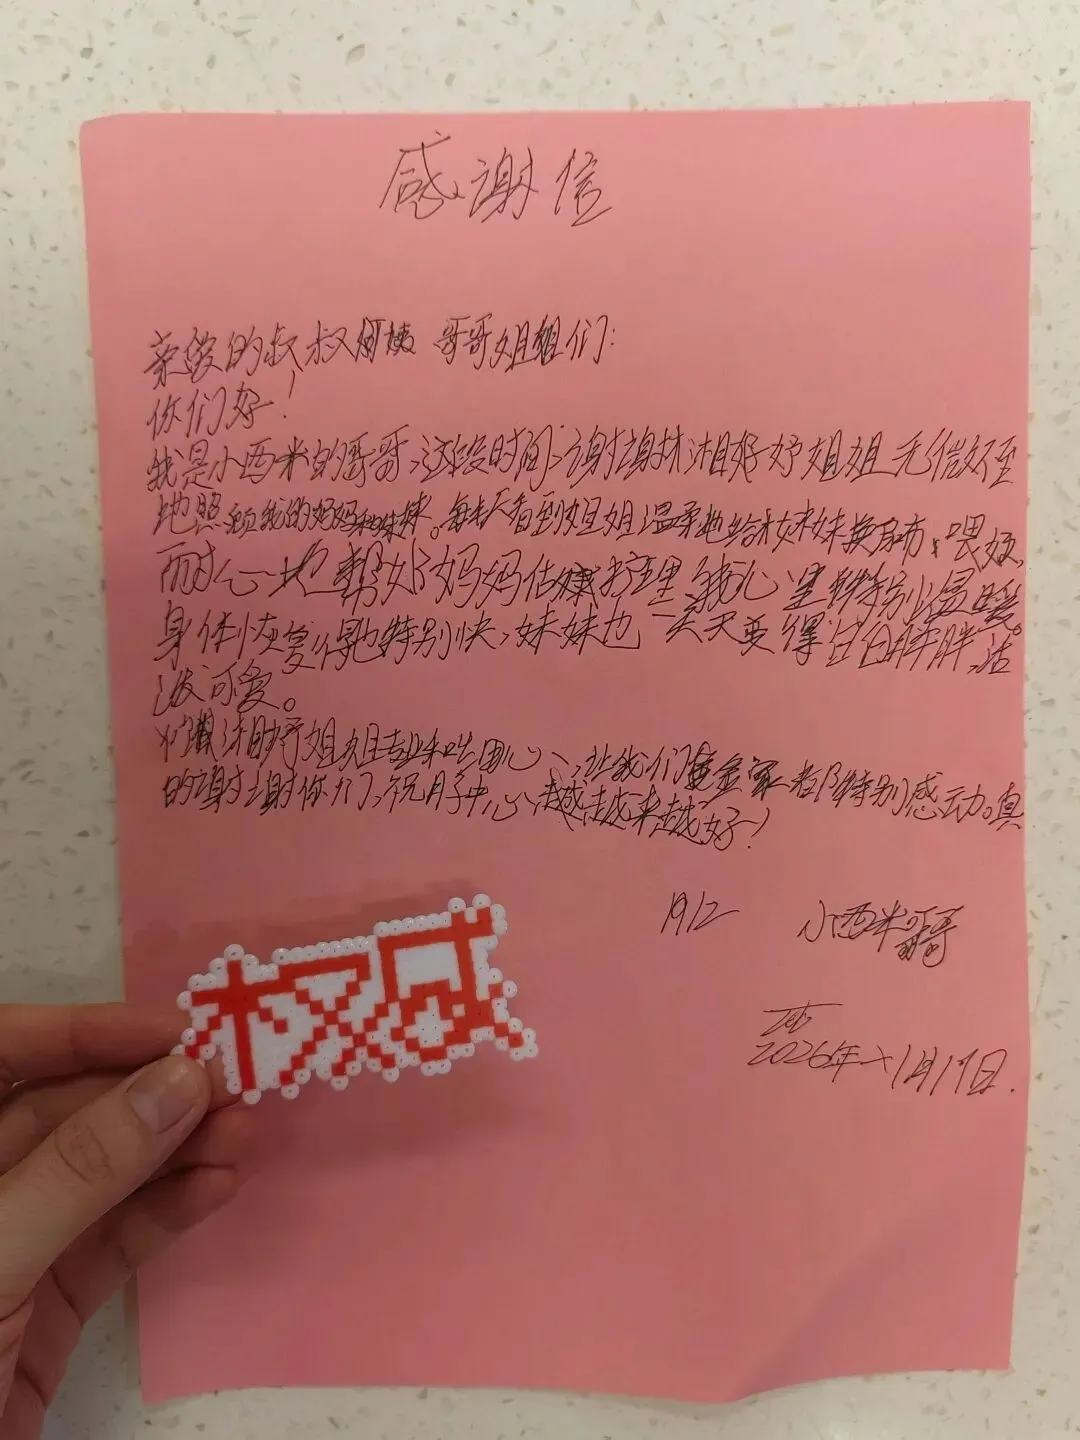 感谢信
亲爱的叔叔阿姨 哥哥姐姐们:
你们好!
我是小西米的哥哥,这段时间,谢谢林湘妤妤姐姐无微不至
地照顾我的妈妈和妹妹。每天看到姐姐温柔地给妹妹换尿布、喂奶,
耐心地帮妈妈护理,我心里特别温暖。
身体恢复得也特别快,妹妹也一天天变得白白胖胖,活
泼可爱。
湘妤姐姐专业和细心,让我们全家都特别感动。真
的谢谢你们,祝月子中心越来越好!
1912 小西米哥哥
2026年1月17日.